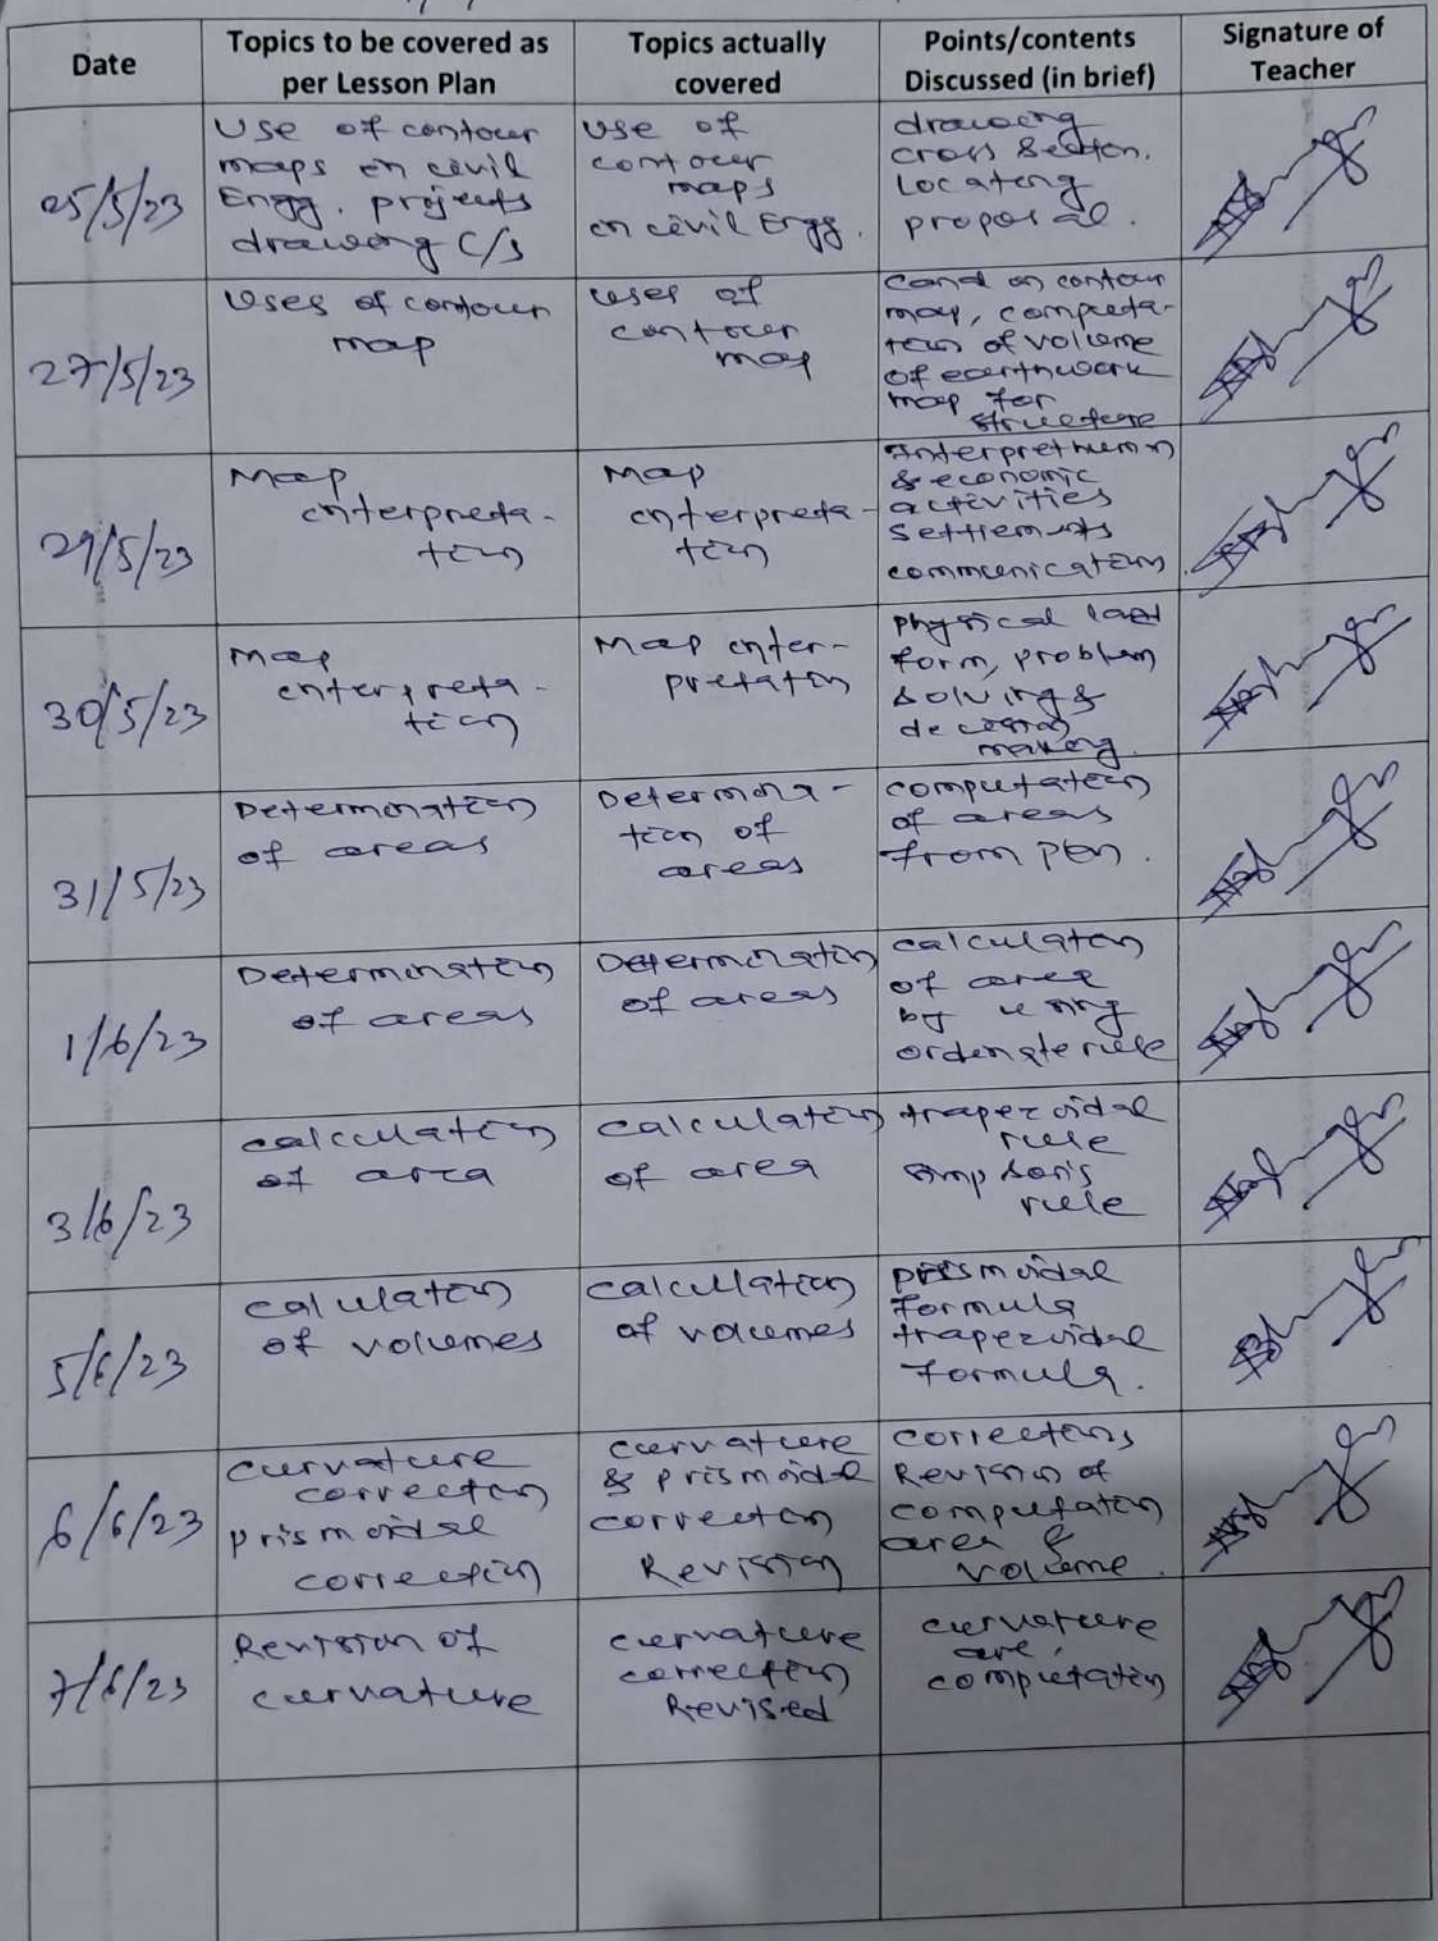 Date
Topics to be covered as
per Lesson Plan
Topics actually
covered
Points/contents
Discussed (in brief)
Signature of
Teacher
25/5/23
Use of contour
maps in civil
Engg. projects
drawing C/s
Use of
contour
maps
in civil Engg.
drawing
cross section.
Locating
proposal.
27/5/23
Uses of contour
map
uses of
contour
map
Canal on contour
map, computa-
tion of volume
of earthwork
map for
structure
29/5/23
Map
interpreta-
tion
Map
interpreta-
tion
Interpret human
& economic
activities
settlements
communication.
30/5/23
Map
interpreta-
tion
Map inter-
pretation
physical land
form, problem
solving &
decision
making.
31/5/23
Determination
of areas
Determina-
tion of
areas
computation
of areas
from plan.
1/6/23
Determination
of areas
Determination
of areas
calculation
of area
by using
ordinate rule
3/6/23
calculation
of area
calculation
of area
trapezoidal
rule
simpson's
rule
5/6/23
calulation
of volumes
calculation
of volumes
prismoidal
formula
trapezoidal
formula.
6/6/23
curvature
correction
prismoidal
correction
curvature
& prismoidal
correction
Revision
corrections
Revision of
computation
area &
volume.
7/6/23
Revision of
curvature
curvature
correction
Revised
curvature
are,
computation